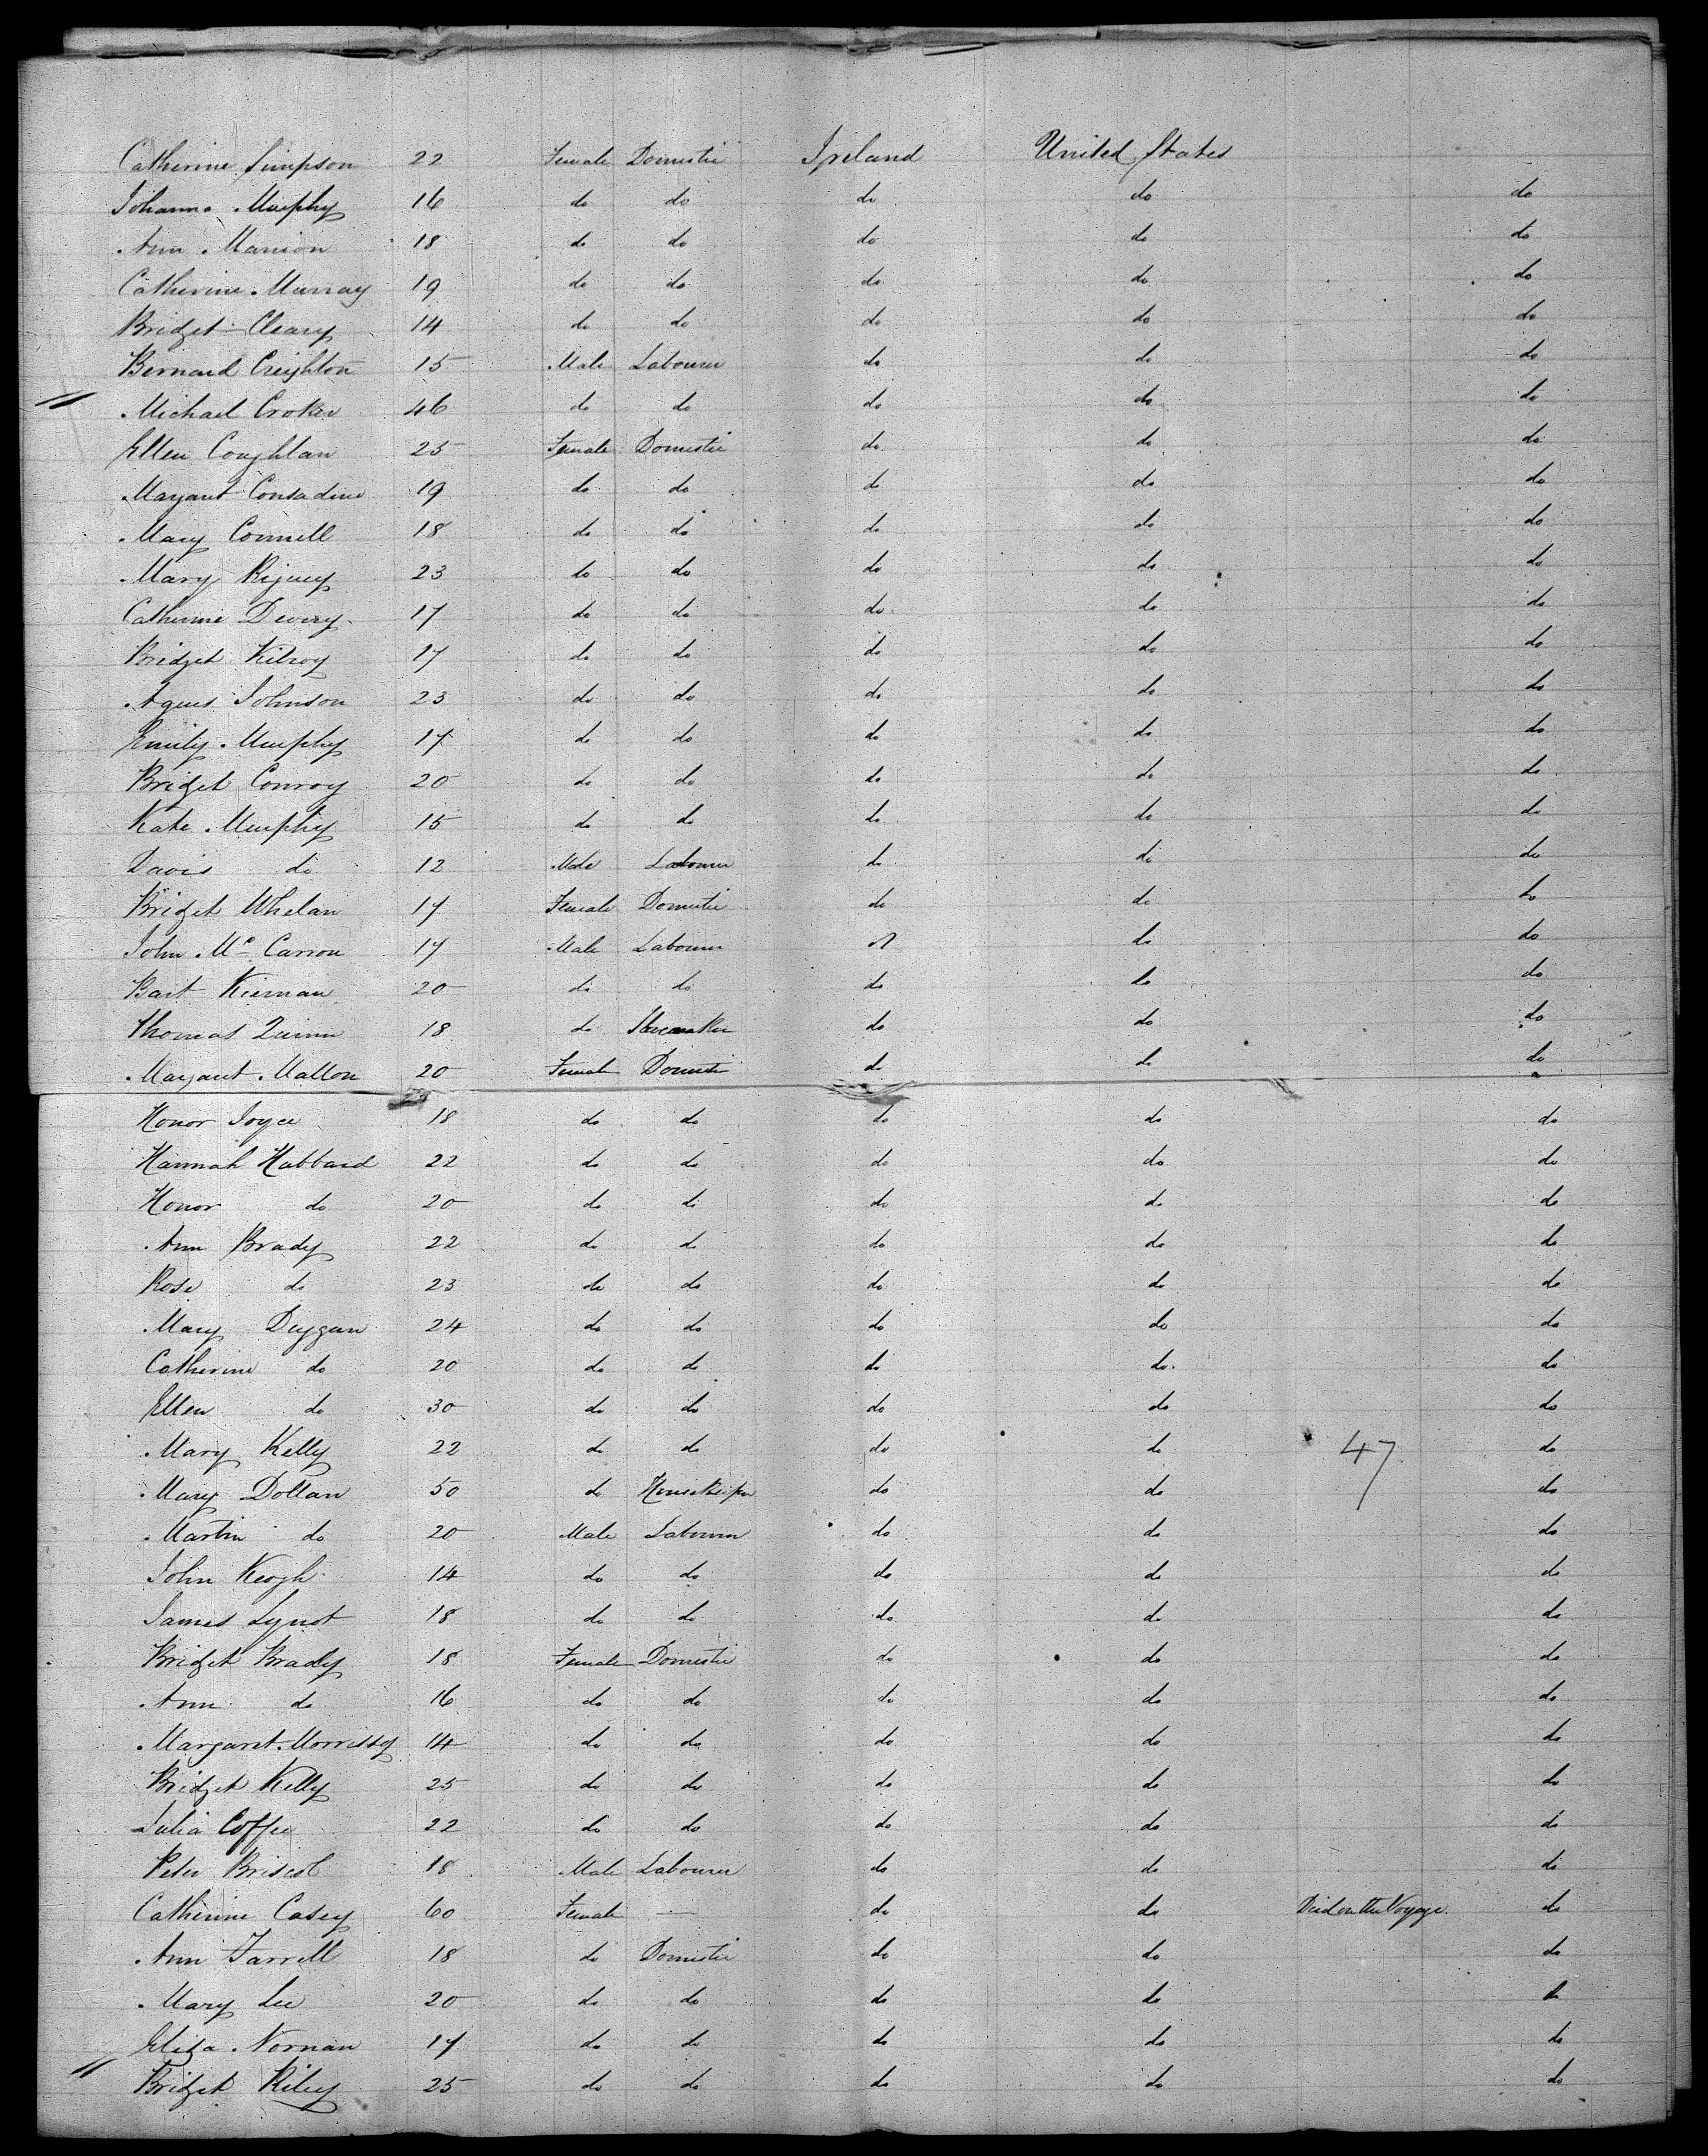 Catherine Simpson 22 Female Domestic Ireland United States
Johanna Murphy 16 do do do do do
Ann Manion 18 do do do do do
Catherine Murray 19 do do do do do
Bridget Cleary 14 do do do do do
Bernard Creighton 15 Male Labourer do do do
Michael Croker 46 do do do do do
Ellen Coughlan 25 Female Domestic do do do
Margaret Consadine 19 do do do do do
Mary Connell 18 do do do do do
Mary Rigney 23 do do do do do
Catherine Devery 17 do do do do do
Bridget Kilroy 17 do do do do do
Agnes Johnson 23 do do do do do
Emily Murphy 17 do do do do do
Bridget Conroy 20 do do do do do
Kate Murphy 15 do do do do do
Davis do 12 Male Labourer do do do
Bridget Whelan 17 Female Domestic do do do
John Mc Carron 17 Male Labourer do do do
Bart Kiernan 20 do do do do do
Thomas Quinn 18 do do do do
Margaret Mallon 20 Female Domestic do do do
Honor Joyce 18 do do do do do
Hannah Habbard 22 do do do do do
Honor do 20 do do do do do
Ann Brady 22 do do do do do
Rose do 23 do do do do do
Mary Deggan 24 do do do do do
Catherine do 20 do do do do do
Ellen do 30 do do do do do
Mary Kelly 22 do do do do 47 do
Mary Dollan 50 do Housekeeper do do do
Martin do 20 Male Labourer do do do
John Keogh 14 do do do do do
James Lynot 18 do do do do do
Bridget Brady 18 Female Domestic do do do
Ann do 16 do do do do do
Margaret Morrissy 14 do do do do do
Bridget Kelly 25 do do do do do
Julia Coffee 22 do do do do do
Peter Briscol 18 Male Labourer do do do
Catherine Casey 60 Female — do do Died on the Voyage. do
Ann Farrell 18 do Domestic do do do
Mary Lee 20 do do do do do
Eliza Nornan 17 do do do do do
Bridget Riley 25 do do do do do